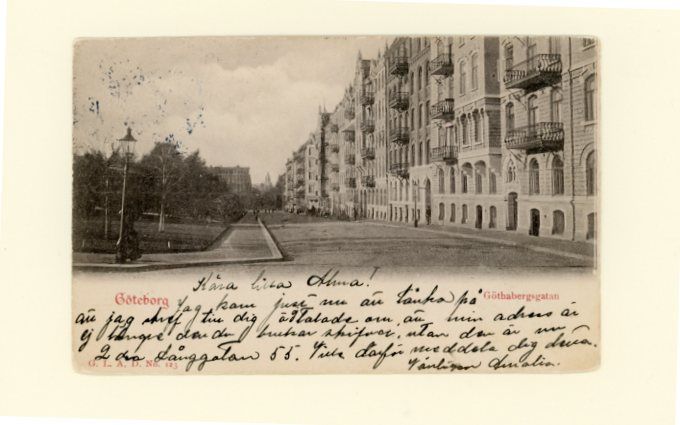 Kära lilla Alma!
Göteborg
Jag kom just nu att tänka på
Göthabergsgatan
att jag skref till dig åt om, att min adress är
ej längre den du brukar skrifva, utan den är nu
2dra Långgatan 55. Vill därför meddela dig detta.
G. L. A. D. No. 123
Vänligen Amalia.